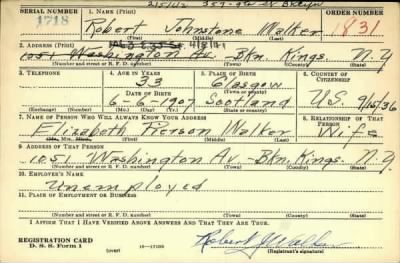 2/5/42 357-
SERIAL NUMBER 1. NAME (Print) ORDER NUMBER
1718 Robert Johnstone Walker 1831
(First) (Middle) (Last)
2. ADDRESS (Print)
1051 Washington Av. Bkn. Kings. N.Y
(Number and street or R. F. D. number) (Town) (County) (State)
3. TELEPHONE 4. AGE IN YEARS 5. PLACE OF BIRTH 6. COUNTRY OF CITIZENSHIP
33 Glasgow
DATE OF BIRTH (Town or county)
6-6-1907 Scotland U.S. 9/15/36
(Exchange) (Number) (Mo.) (Day) (Yr.) (State or country)
7. NAME OF PERSON WHO WILL ALWAYS KNOW YOUR ADDRESS 8. RELATIONSHIP OF THAT PERSON
Elizabeth Pierson Walker Wife
(Mr., Mrs., Miss) (First) (Middle) (Last)
9. ADDRESS OF THAT PERSON
1051 Washington Av. Bkn. Kings. N.Y
(Number and street or R. F. D. number) (Town) (County) (State)
10. EMPLOYER'S NAME
Unemployed
11. PLACE OF EMPLOYMENT OR BUSINESS
(Number and street or R. F. D. number) (Town) (County) (State)
I AFFIRM THAT I HAVE VERIFIED ABOVE ANSWERS AND THAT THEY ARE TRUE.
REGISTRATION CARD
D. S. S. Form 1 (over) 16—17105 Robert J Walker
(Registrant's signature)